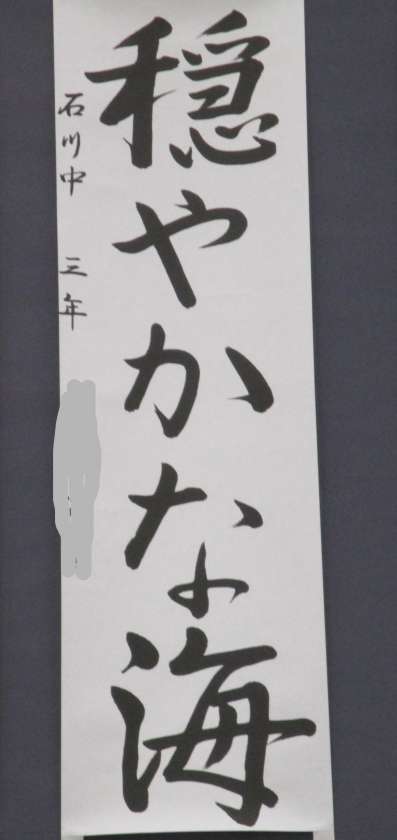 穏やかな海
石川中 三年